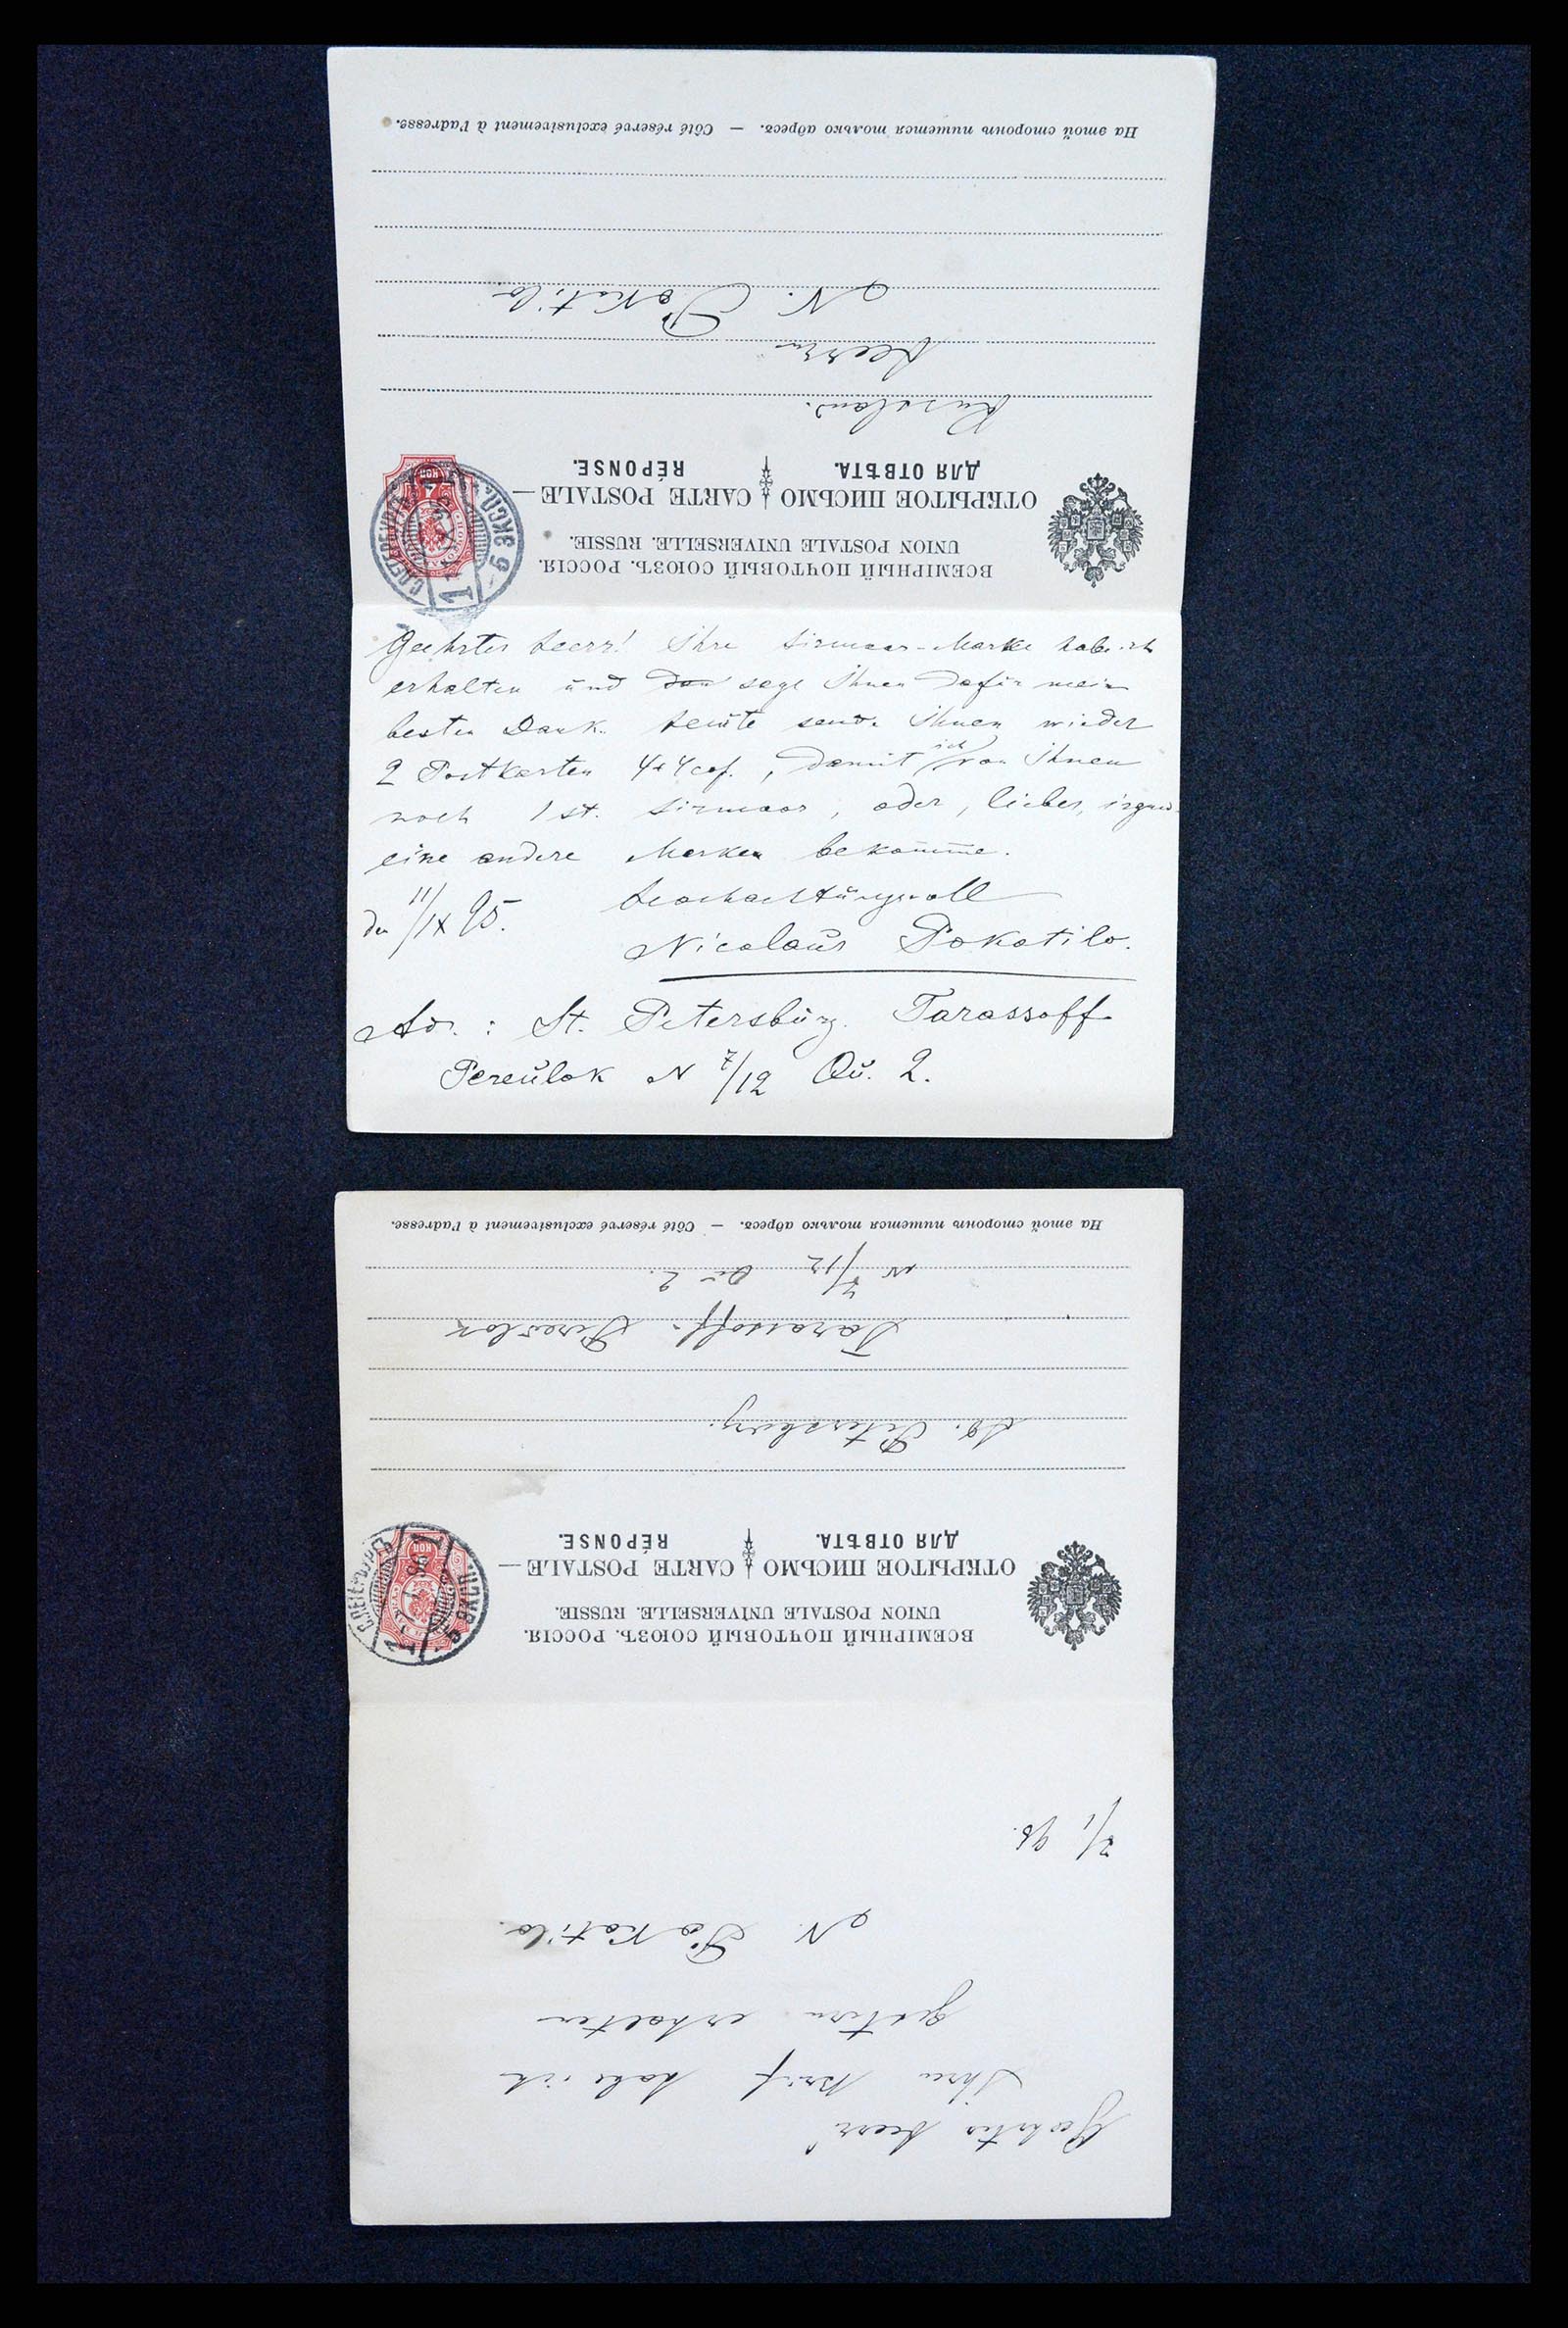 ВСЕМІРНЫЙ ПОЧТОВЫЙ СОЮЗЪ. РОССІЯ.
UNION POSTALE UNIVERSELLE. RUSSIE.
ОТКРЫТОЕ ПИСЬМО CARTE POSTALE
ДЛЯ ОТВѢТА. RÉPONSE.
Russland.
Herrn
N. Pokotilo.
На этой сторонѣ пишется только адресъ. — Côté réservé exclusivement à l'adresse.
Geehrter Herr! Ihre Sirmoor-Marke habe ich
erhalten und sage Ihnen dafür mein
besten Dank. Heute sende Ihnen wieder
2 Postkarten 4+4 cop., damit ich von Ihnen
noch 1 st. Sirmoor, oder, lieber, irgend
eine andere Marken bekomme.
Hochachtungsvoll
den 11/IX 95.
Nicolaus Pokotilo.
Adr.: St. Petersburg. Tarassoff-
Pereulok N 7/12 Qu. 2.
ВСЕМІРНЫЙ ПОЧТОВЫЙ СОЮЗЪ. РОССІЯ.
UNION POSTALE UNIVERSELLE. RUSSIE.
ОТКРЫТОЕ ПИСЬМО CARTE POSTALE
ДЛЯ ОТВѢТА. RÉPONSE.
St. Petersburg.
Tarassoff-Pereulok
N 7/12 Qu 2.
На этой сторонѣ пишется только адресъ. — Côté réservé exclusivement à l'adresse.
Geehrter Herr!
Ihren Brief habe ich
gestern erhalten
N. Pokotilo.